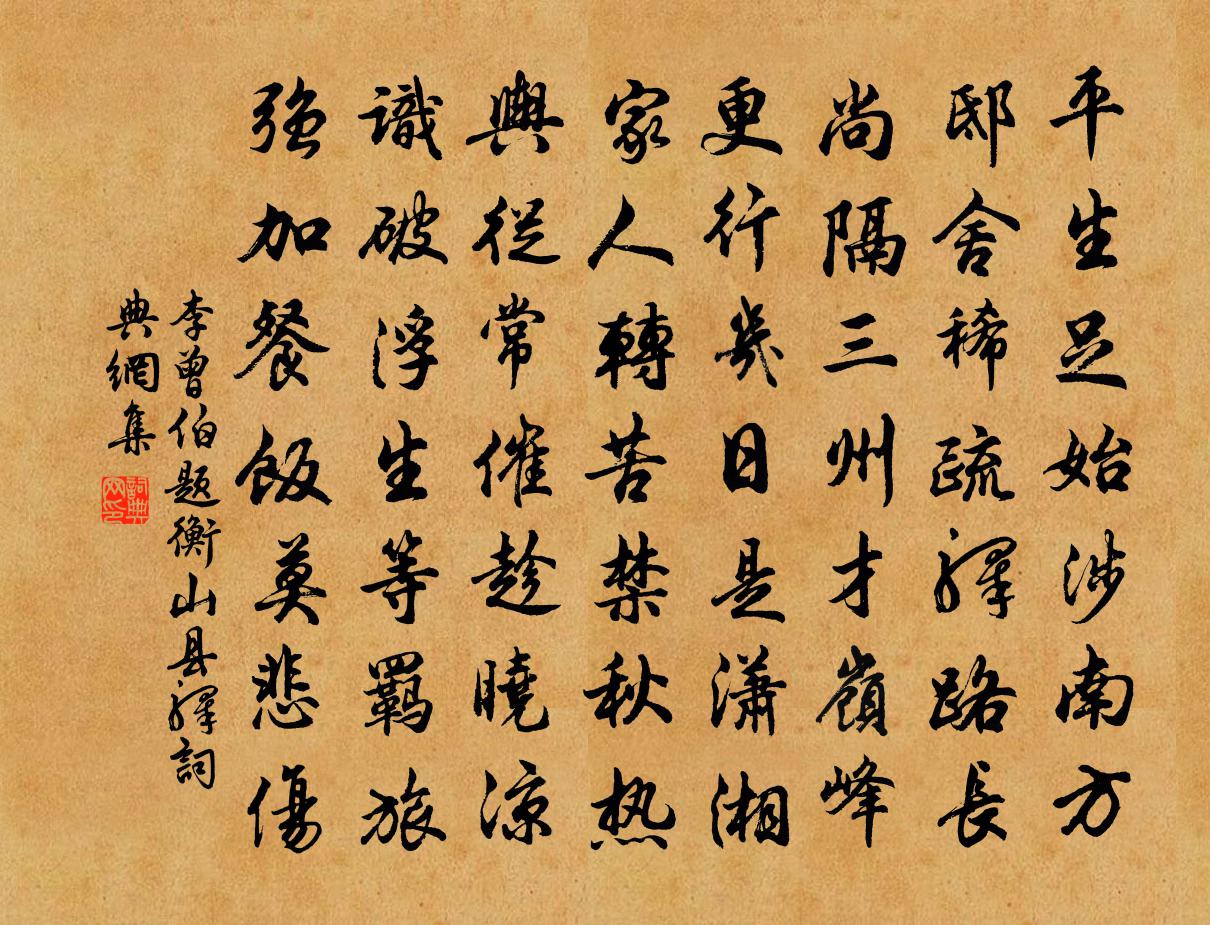 平生足始涉南方
邸舍稀疏驛路長
尚隔三州才嶺峰
更行幾日是瀟湘
家人轉苦禁秋热
輿從常催趁曉涼
識破浮生等羈旅
強加餐飯莫悲傷
李曾伯題衡山县驛詞
典網集
詞典
网印